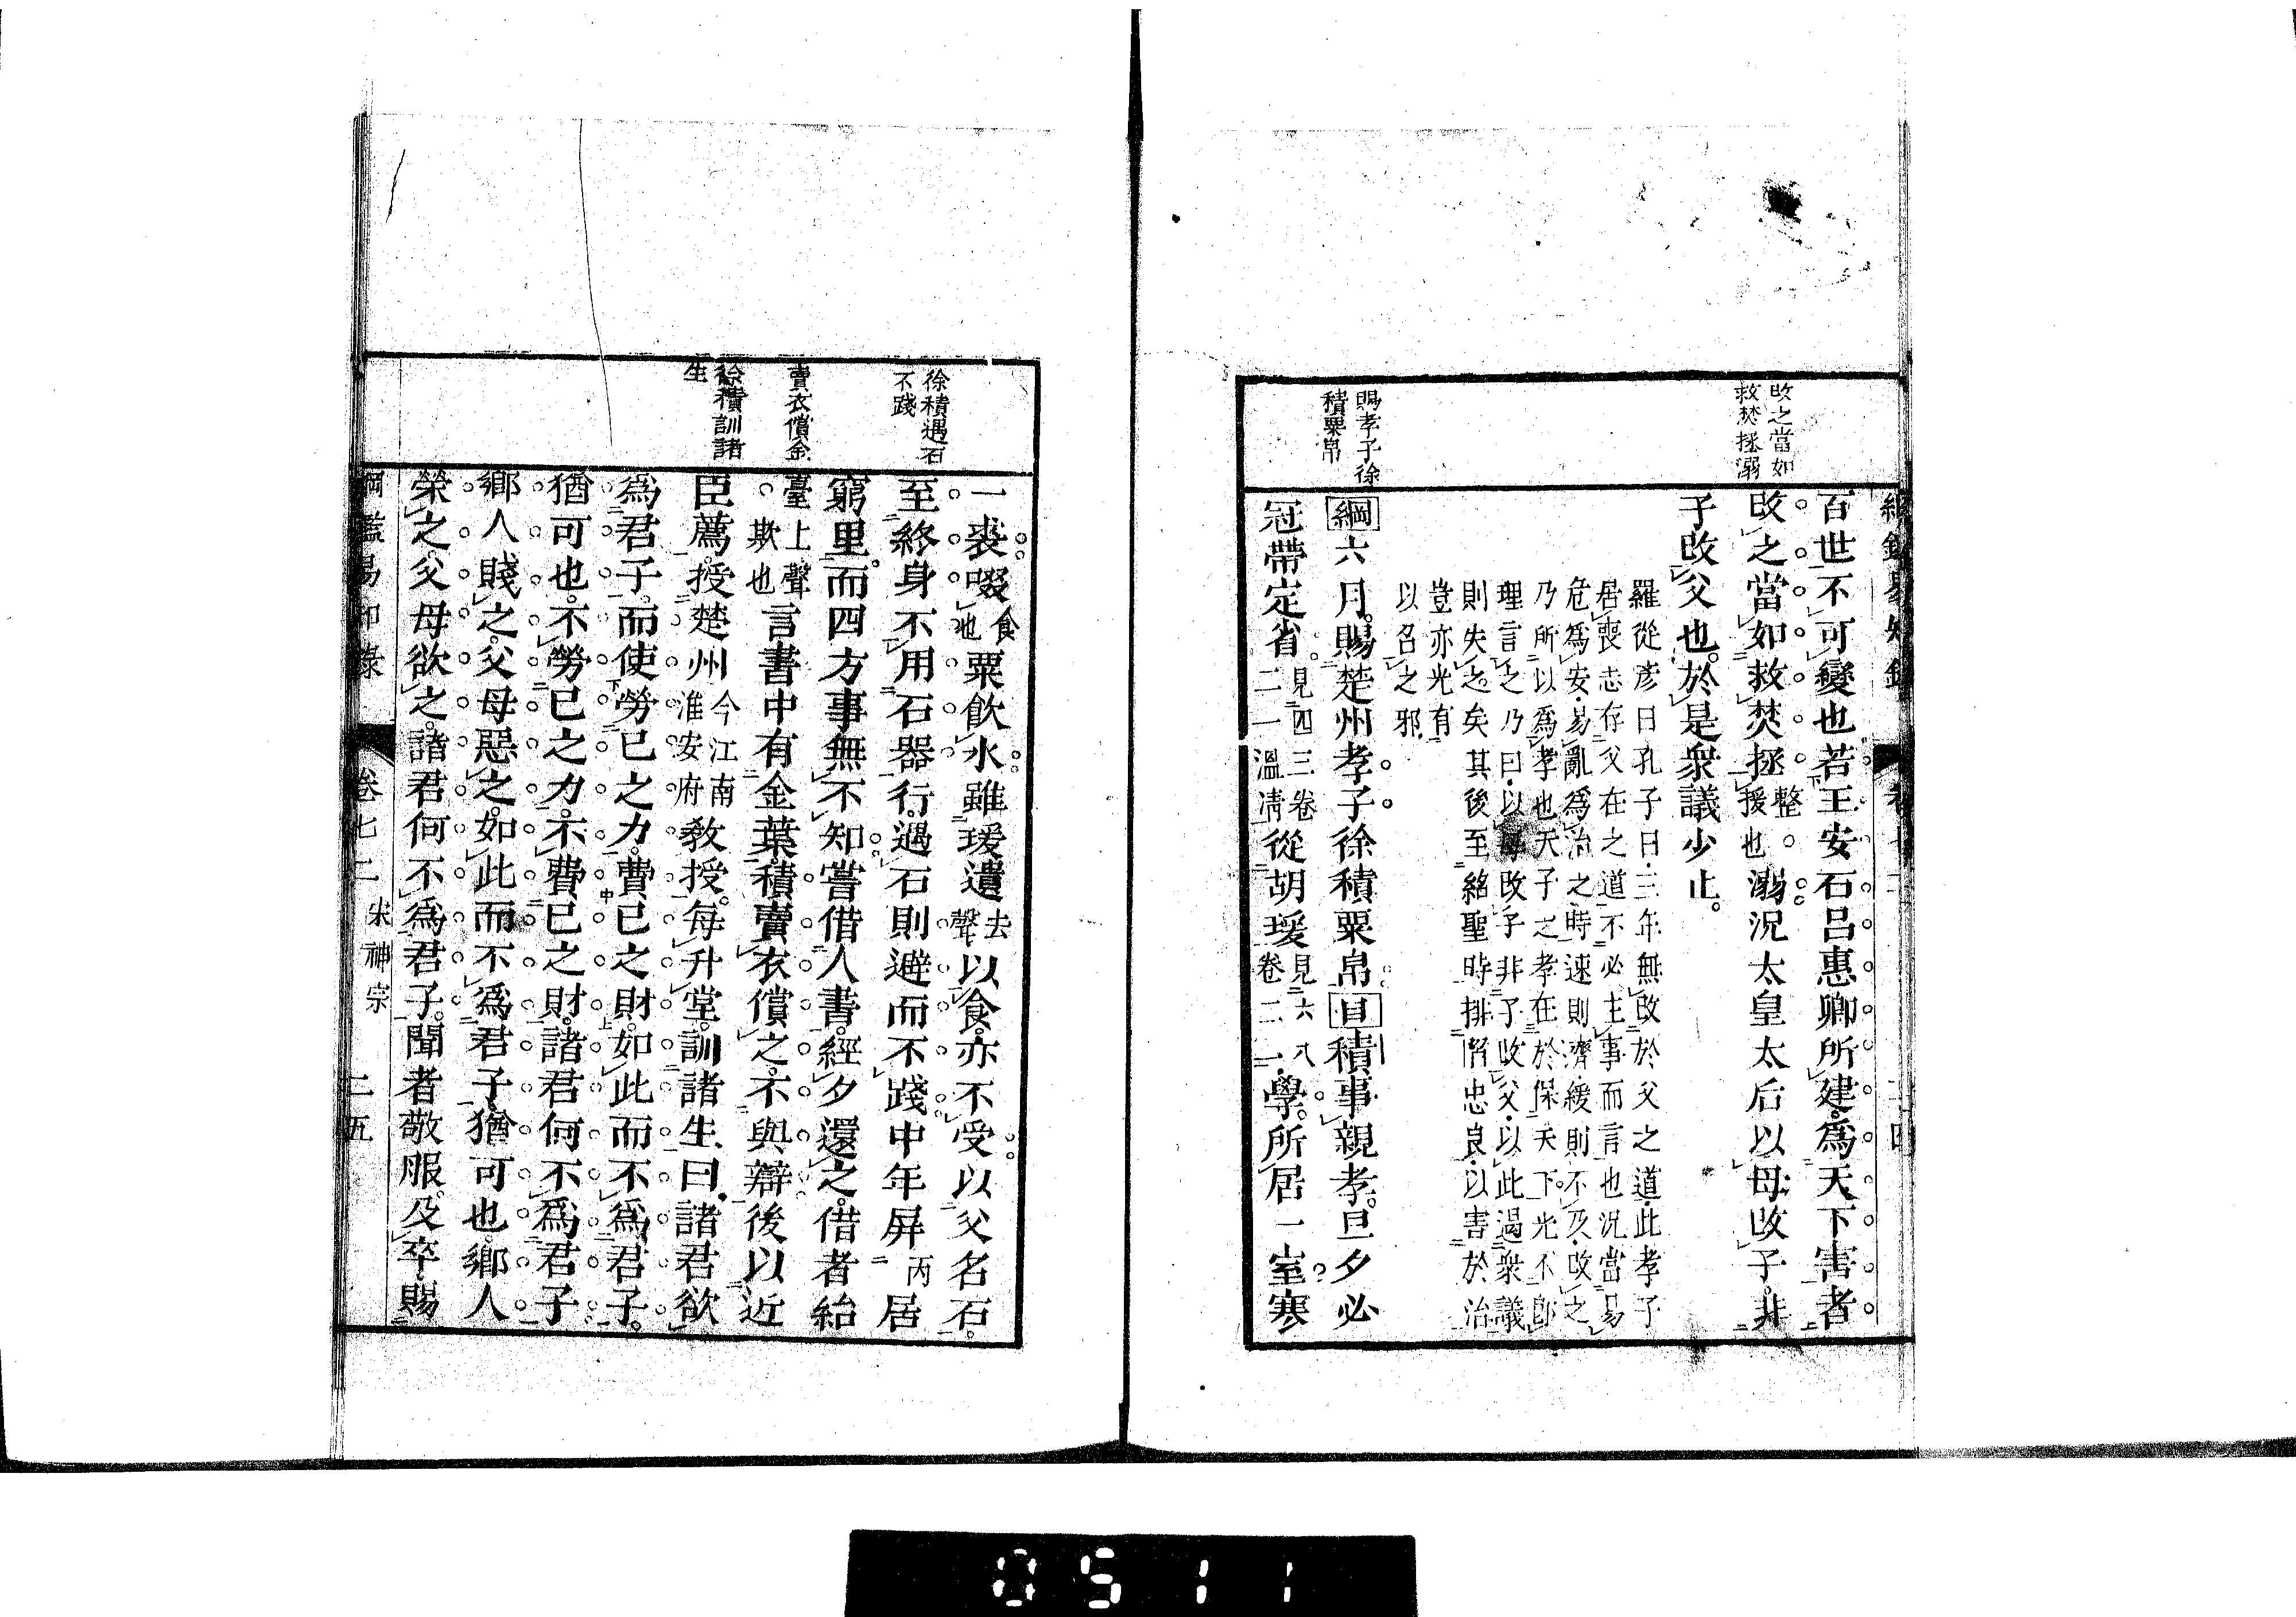 改之當如
救焚拯溺
賜孝子徐
積粟帛
百世不可變也若王安石呂惠卿所建爲天下害者
改之當如救焚拯整。援也溺況太皇太后以母改子非
子改父也於是衆議少止
羅從彥曰孔子曰三年無改於父之道此孝子
居喪志存父在之道不必主事而言也況當易
危爲安易亂爲治之時速則濟緩則不及改之
乃所以爲孝也天子之孝在於保天下光不卽
理言之乃曰以母改子非子改父以此遏衆議
則失之矣其後至紹聖時排陷忠良以害於治
豈亦光有
以召之邪
綱六月賜楚州孝子徐積粟帛目積事親孝旦夕必
冠帶定省見四三卷二一溫凊從胡瑗見六八卷二一學所居一室寒
徐積遇石
不踐
賣衣償金
徐積訓諸
生
一裘啜食也粟飮水雖瑗遺去聲以食亦不受以父名石
至終身不用石器行遇石則避而不踐中年屏丙居
窮里而四方事無不知嘗借人書經夕還之借者紿
臺上聲。欺也言書中有金葉積賣衣償之不與辯後以近
臣薦授楚州今江南淮安府敎授每升堂訓諸生曰諸君欲
爲君子而使勞己之力費己之財如此而不爲君子
猶可也不勞己之力不費己之財諸君何不爲君子
鄉人賤之父母惡之如此而不爲君子猶可也鄉人
榮之父母欲之諸君何不爲君子聞者敬服及卒賜
綱鑑易知錄 卷七二 宋神宗 二五
0511